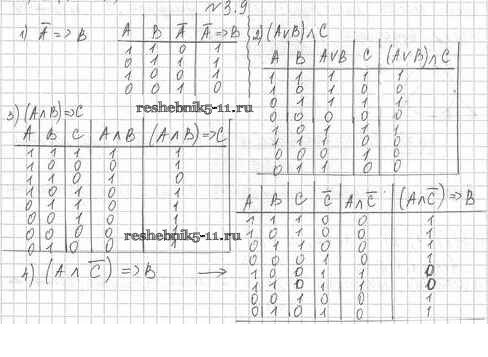 №3.9
1) A̅ => B
A B A̅ A̅ => B
1 1 0 1
0 1 1 1
1 0 0 1
0 0 1 0
2) (A∨B)∧C
A B A∨B C (A∨B)∧C
1 1 1 1 1
1 0 1 0
0 1 1 1 1
0 0 0 0 0
1 0 1 1 1
1 1 1 0 0
0 0 0 1 0
0 1 1 0 0
3) (A∧B) => C
reshebnik5-11.ru
A B C A∧B (A∧B) => C
1 1 1 1 1
1 0 0 0 1
1 1 0 1 0
1 0 1 0 1
0 1 1 0 1
0 0 0 0 1
0 0 1 0
0 1 0 0 1
reshebnik5-11.ru
4) (A∧C̅) => B →
A B C C̅ A∧C̅ (A∧C̅) => B
1 1 1 0 0 1
1 0 1 0 0 1
0 1 1 0 0 1
0 0 0 1 0 1
1 0 0 1 1 0
1 1 0 1 1 0
0 0 1 0 0 1
0 1 0 1 0 1